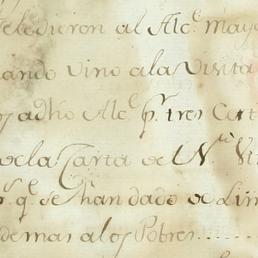 se le dieron al Alc.e mayo
uando vino a la Visita
os a dho Alc.e p.r tres Cart
de la Carta de N.ra
p.r q.e se han dado de Lim
demas a los Pobres......